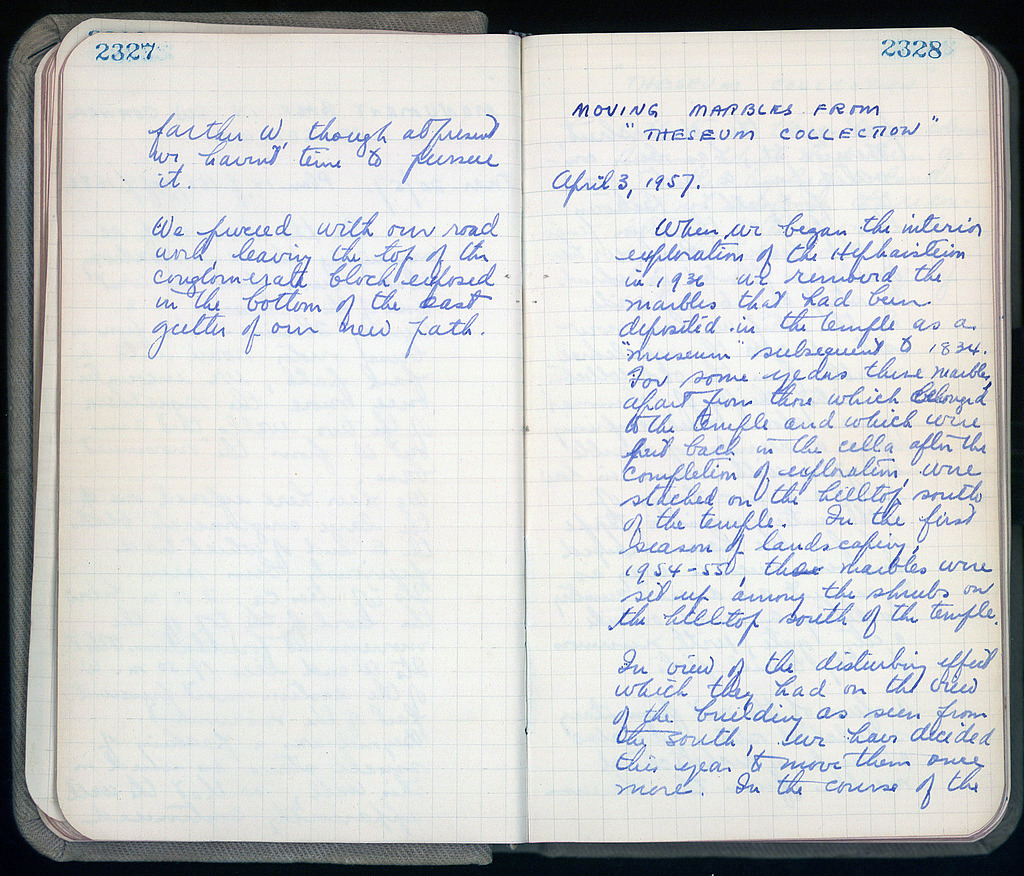 2327
farther W, though at present
we havent time to pursue
it.
We proceed with our road
work, leaving the top of the
conglomerate block exposed
in the bottom of the east
gutter of our new path.
2328
MOVING MARBLES FROM
"THESEUM COLLECTION"
April 3, 1957.
When we began the interior
exploration of the Hephaisteion
in 1936 we removed the
marbles that had been
deposited in the temple as a
"museum" subsequent to 1834.
For some years these marbles,
apart from those which belonged
to the temple and which were
put back in the cella after the
completion of exploration, were
stacked on the hilltop south
of the temple. In the first
season of landscaping,
1954-55, these marbles were
set up among the shrubs on
the hilltop south of the temple.
In view of the disturbing effect
which they had on the view
of the building as seen from
the south, we have decided
this year to move them once
more. In the course of the